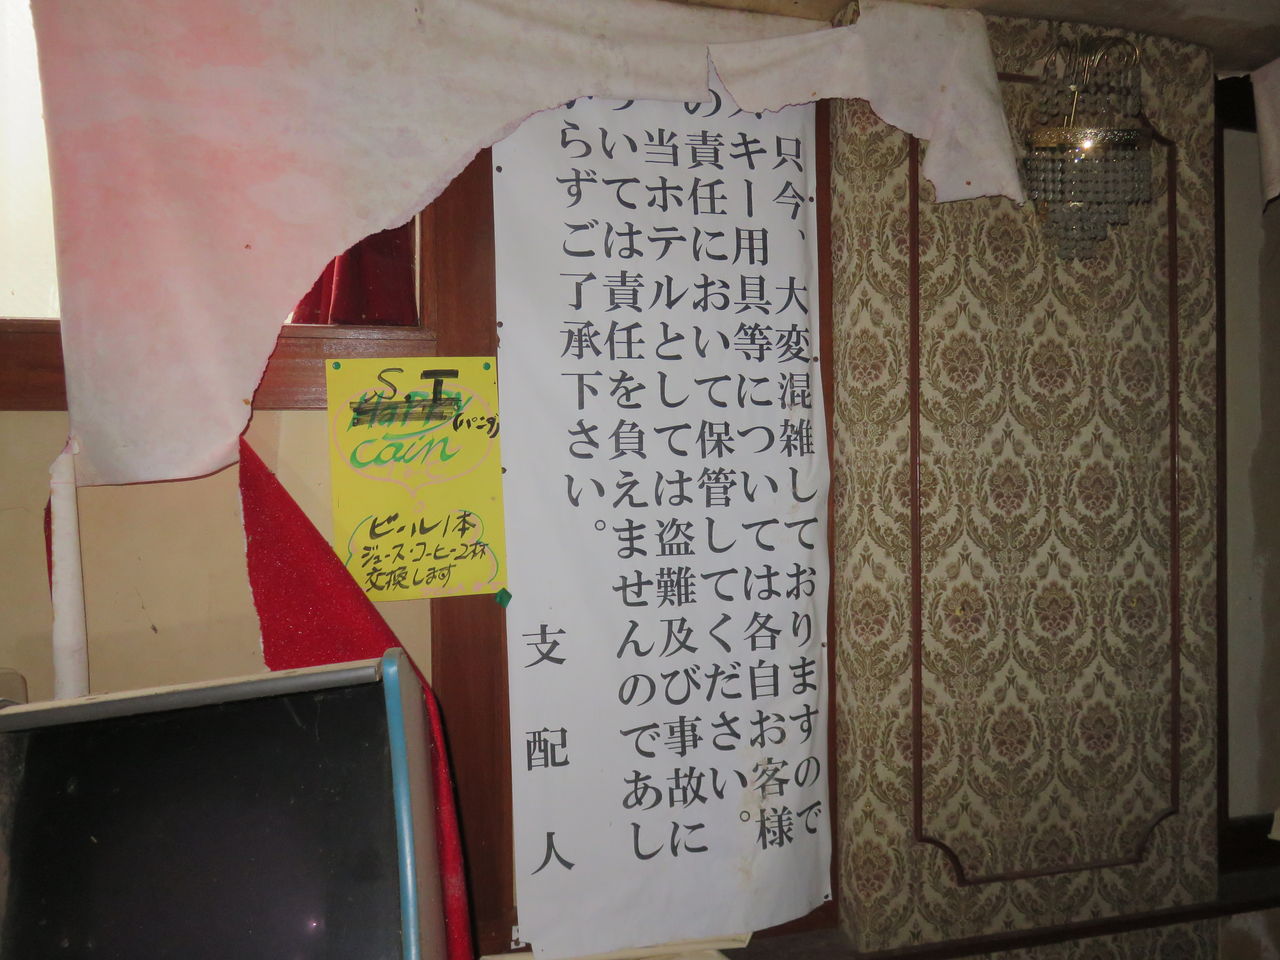 只今、大変混雑しておりますので
スキー用具等については各自お客様
の責任において保管してください。
当ホテルとしては盗難及び事故に
ついては責任を負えませんのであし
からずご了承下さい。
支配人
S T
Happy
(パニク)
cain
ビール1本
ジュース・コーヒー2杯
交換します